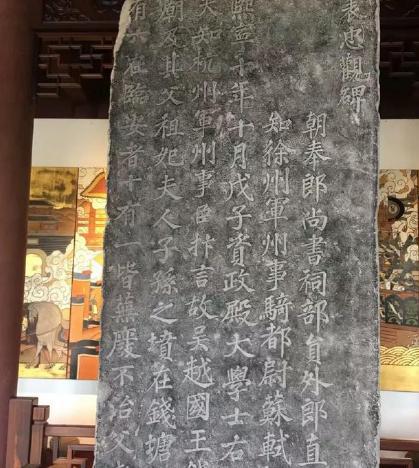 表忠觀碑
朝奉郎尚書祠部員外郎直
知徐州軍州事騎都尉蘇軾
熙寧十年十月戊子資政殿大學士右
大知杭州軍州事臣抃言故吳越國王
廟及其父祖妃夫人子孫之墳在錢塘
有六在臨安者十有一皆蕪廢不治父